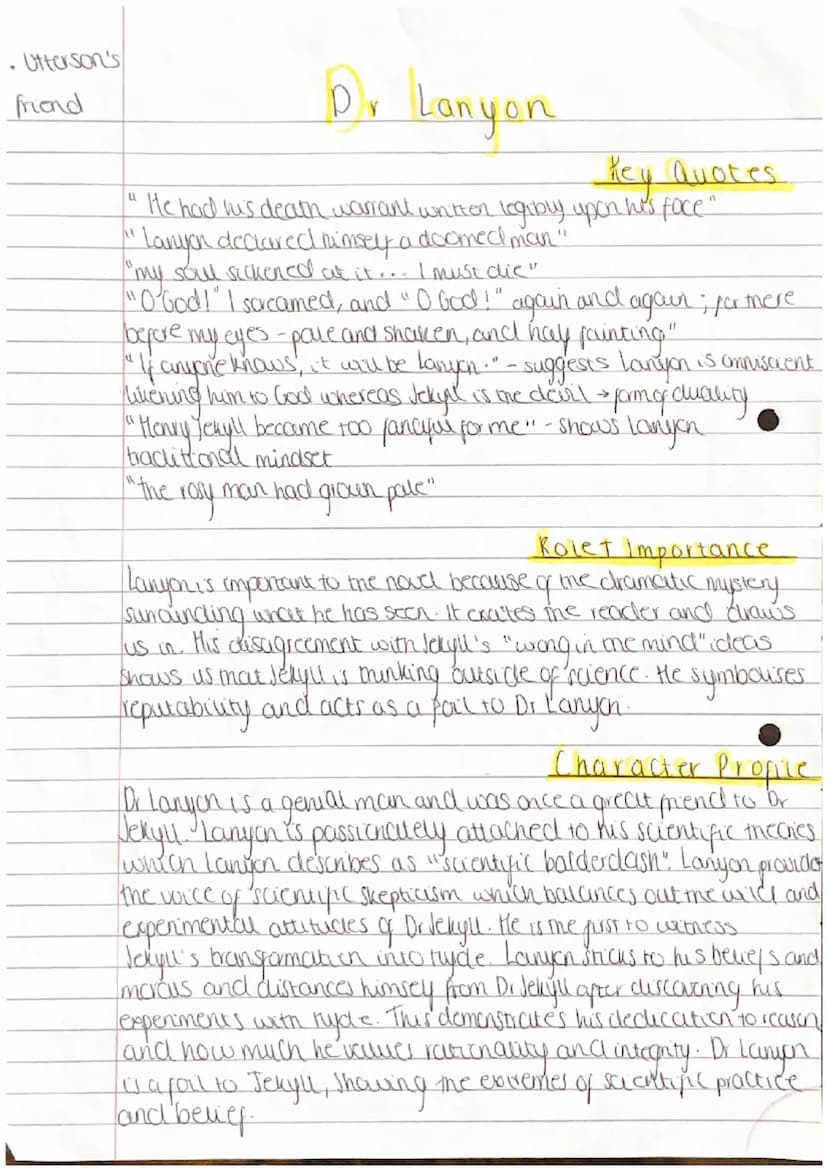 . Utterson's
friend
Dr Lanyon
Key Quotes
" He had his death warrant written legibly upon his face"
" Lanyon declared himself a doomed man"
"my soul sickened at it... I must die"
"O God!" I screamed, and "O God!" again and again ; for there
before my eyes - pale and shaken, and half fainting"
"If anyone knows, it will be Lanyon." - suggests Lanyon is omniscient
likening him to God whereas Jekyll is the devil → form of duality
"Henry Jekyll became too fanciful for me" - shows Lanyon
traditional mindset
"the rosy man had grown pale"
Role + Importance
Lanyon is important to the novel because of the dramatic mystery
surrounding what he has seen. It excites the reader and draws
us in. His disagreement with Jekyll's "wrong in the mind" ideas
shows us that Jekyll is thinking outside of science. He symbolises
reputability and acts as a foil to Dr Lanyon.
Character Profile
Dr Lanyon is a genial man and was once a great friend to Dr
Jekyll. Lanyon is passionately attached to his scientific theories
which Lanyon describes as "scientific balderdash". Lanyon provides
the voice of scientific skepticism which balances out the wild and
experimental attitudes of Dr Jekyll. He is the first to witness
Jekyll's transformation into Hyde. Lanyon sticks to his beliefs and
morals and distances himself from Dr Jekyll after discovering his
experiments with Hyde. This demonstrates his dedication to reason
and how much he values rationality and integrity. Dr Lanyon
is a foil to Jekyll, showing the extremes of scientific practice
and belief.